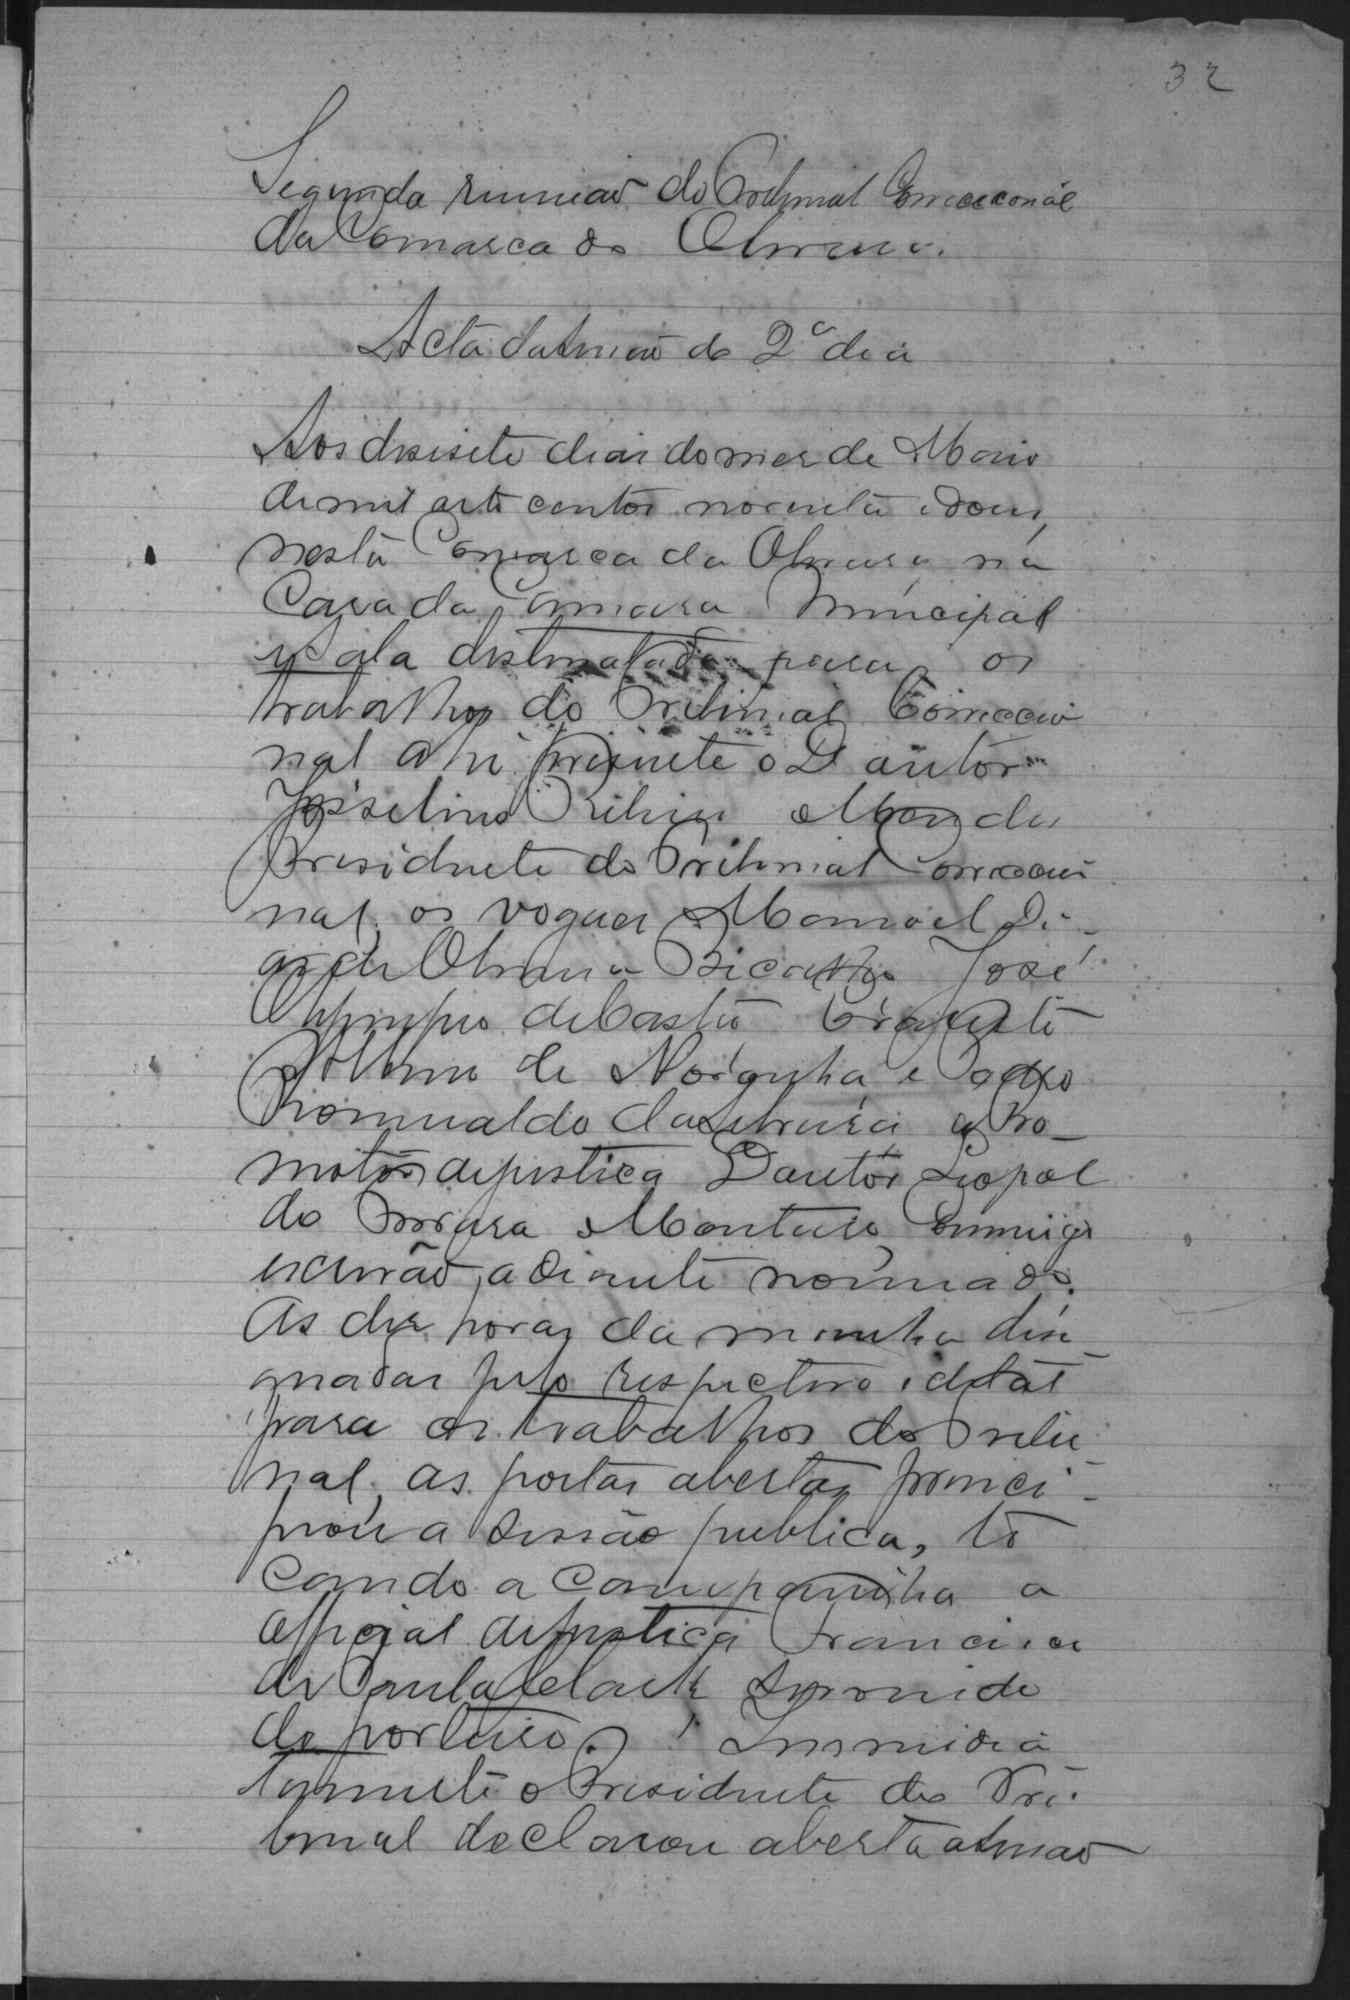 32
Segunda reuniaõ do Tribunal Correccional
da Comarca do Oliveira.
Acta da reuniaõ do 2º dia
Aos desesete dias do mes de Maio
de mil oito centos noventa e dous,
nesta Comarca da Oliveira na
Casa da Camara Municipal
e sala destinatada para os
trabalhos do Tribunal Correccio
nal ahi presente o Doutor
Josselino Ribeiro Mendes
Presidente do Tribunal Correccio
nal, os vogaes Manoel Di-
as de Oliveira Bicalho José
Olympio de Castro
de Noronha, e
Romualdo da Silveira o Pro-
motor de justiça Doutor Leopol
do Monteiro, Commigo
escrivão, adiante nomiado.
As dez horas da manha desi-
gnadas pelo respectivo edital
para os trabalhos do Tribu
nal, as portas abertas princi-
piou a sessão publica, to
cando a campainha o
official de justiça Francisco
de Paula servindo
de porteiro. Immidia
tamente o Presidente do Tri-
bunal declarou aberta a